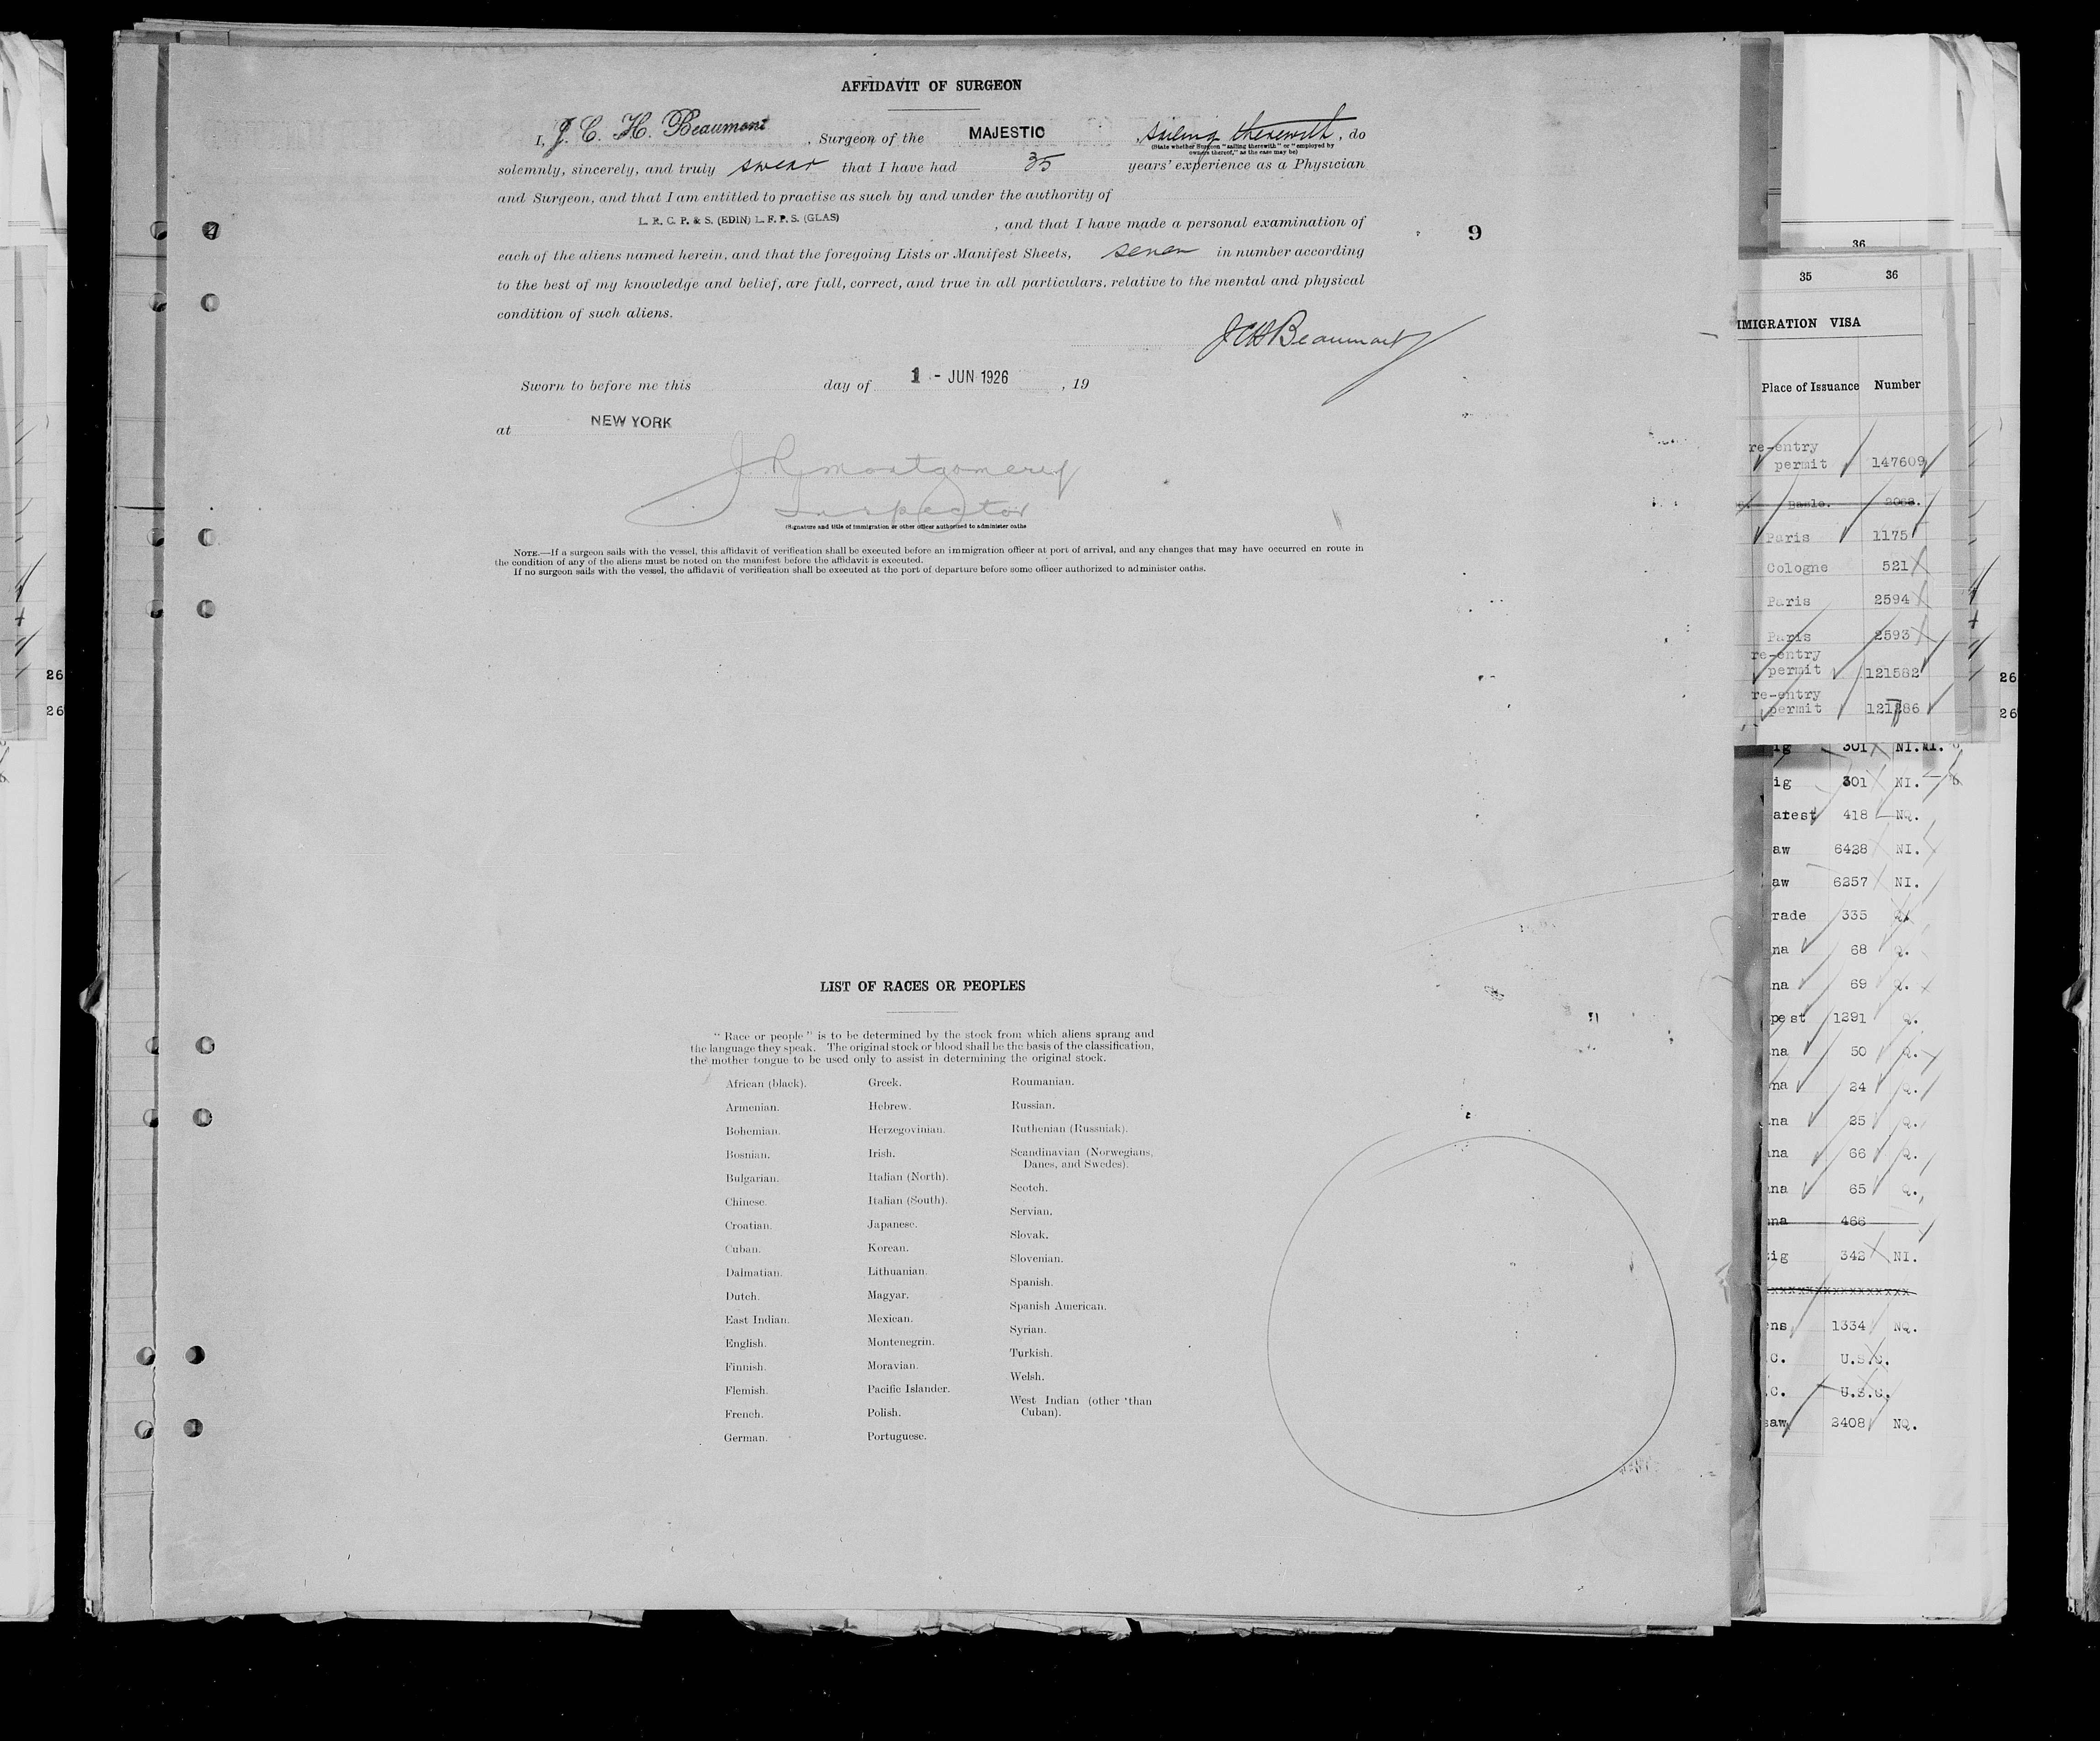 AFFIDAVIT OF SURGEON
I, J. C. H. Beaumont, Surgeon of the MAJESTIC, sailing therewith, do
(State whether Surgeon "sailing therewith" or "employed by
owners thereof," as the case may be)
solemnly, sincerely, and truly swear that I have had 35 years' experience as a Physician
and Surgeon, and that I am entitled to practise as such by and under the authority of
L. R. C. P. & S. (EDIN) L. F. P. S. (GLAS), and that I have made a personal examination of
9
each of the aliens named herein, and that the foregoing Lists or Manifest Sheets, seven in number according
to the best of my knowledge and belief, are full, correct, and true in all particulars, relative to the mental and physical
condition of such aliens.
JCHBeaumont
Sworn to before me this day of 1 - JUN 1926, 19
at NEW YORK
J R Montgomery
Inspector
(Signature and title of immigration or other officer authorized to administer oaths
NOTE.—If a surgeon sails with the vessel, this affidavit of verification shall be executed before an immigration officer at port of arrival, and any changes that may have occurred en route in
the condition of any of the aliens must be noted on the manifest before the affidavit is executed.
If no surgeon sails with the vessel, the affidavit of verification shall be executed at the port of departure before some officer authorized to administer oaths.
LIST OF RACES OR PEOPLES
"Race or people" is to be determined by the stock from which aliens sprang and
the language they speak. The original stock or blood shall be the basis of the classification,
the mother tongue to be used only to assist in determining the original stock.
African (black).
Armenian.
Bohemian.
Bosnian.
Bulgarian.
Chinese.
Croatian.
Cuban.
Dalmatian.
Dutch.
East Indian.
English.
Finnish.
Flemish.
French.
German.
Greek.
Hebrew.
Herzegovinian.
Irish.
Italian (North).
Italian (South).
Japanese.
Korean.
Lithuanian.
Magyar.
Mexican.
Montenegrin.
Moravian.
Pacific Islander.
Polish.
Portuguese.
Roumanian.
Russian.
Ruthenian (Russniak).
Scandinavian (Norwegians,
Danes, and Swedes).
Scotch.
Servian.
Slovak.
Slovenian.
Spanish.
Spanish American.
Syrian.
Turkish.
Welsh.
West Indian (other than
Cuban).
26
26
36
35 36
IMMIGRATION VISA
Place of Issuance Number
re-entry
permit 147609
Basle. 2068.
Paris 1175
Cologne 521
Paris 2594
Paris 2593
re-entry
permit 121582
26
re-entry
permit 121286
26
ig 301 NI.
ig 301 NI.
arest 418 NQ.
aw 6428 NI.
aw 6257 NI.
rade 335
na 68 Q.
na 69 Q.
pest 1291 Q.
na 50 Q.
na 24 Q.
na 25 Q.
na 66 Q.
na 65 Q.
na 466
zig 342 NI.
xxxxxxxxxxxxxxxxx
ens 1334 NQ.
.C. U.S.C.
.C. U.S.C.
saw 3408 NQ.